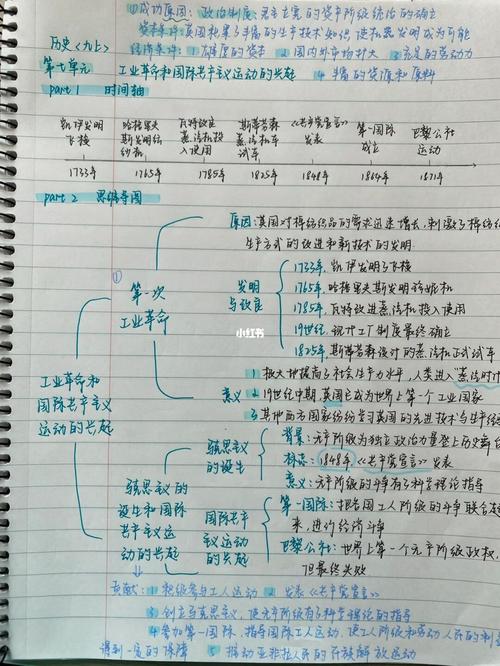 ①成功原因:政治制度:君主立宪的资产阶级统治的确立
技术条件:英国积累了丰富的生产技术知识,使机器发明成为可能
历史《九上》
经济条件:1 雄厚的资本 2 国内外市场扩大 3 充足的劳动力
第七单元 工业革命和国际共产主义运动的兴起 4 丰富的资源和原料
part 1 时间轴
凯伊发明飞梭 哈格里夫斯发明纺纱机 瓦特改良蒸汽机投入使用 斯蒂芬森蒸汽机车试车 《共产党宣言》发表 第一国际成立 巴黎公社运动
1733年 1765年 1785年 1825年 1848年 1864年 1871年
part 2 思维导图
工业革命和国际共产主义运动的兴起
①
第一次工业革命
原因:英国对棉纺织品的需求迅速增长,刺激了棉纺织
生产方式的改进和新技术的发明
发明与改良
1733年,凯伊发明了飞梭
1765年,哈格里夫斯发明珍妮机
1785年,瓦特改进蒸汽机投入使用
19世纪,现代工厂制度最终确立
1825年,斯蒂芬森设计的蒸汽机车正式试车
意义
1 极大地提高了社会生产力水平,人类进入"蒸汽时代
2 19世纪中期,英国成为世界上第一个工业国家
3 其他西方国家纷纷学习英国的先进技术与生产经
马克思主义的诞生和国际共产主义运动的兴起
马克思主义的诞生
背景:无产阶级为独立政治力量登上历史舞台
标志:1848年,《共产党宣言》发表
意义:无产阶级的斗争有了科学理论指导
国际共产主义运动的兴起
第一国际:把各国工人阶级的斗争联合起
来,进行经济斗争
巴黎公社:世界上第一个无产阶级政权,
但最终失败
贡献:1 积极参与工人运动 2 发表《共产党宣言》
3 创立马克思主义,使无产阶级有了科学理论的指导
4 参加第一国际,指导国际工人运动,使工人阶级和劳动人民的利
得到一定的保障 5 推动亚非拉人民的民族解放运动
小红书